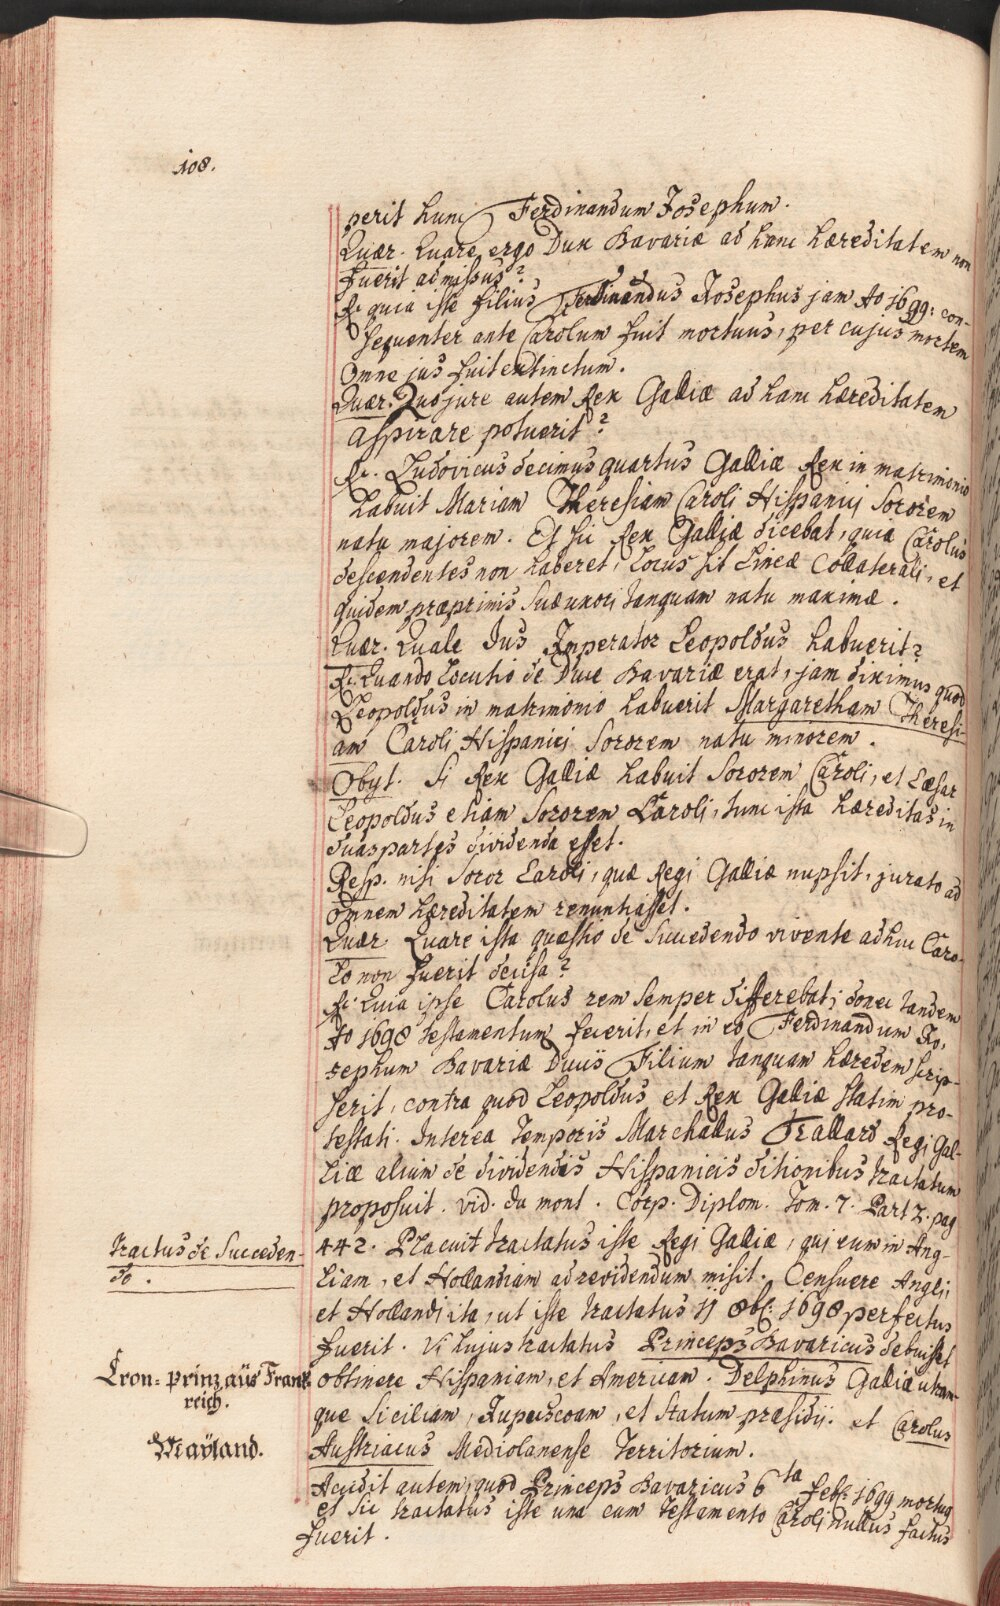 108.
perit hunc Ferdinandum Josephum.
Quær. Quare ergo Dux Bavariæ ad hanc hæreditatem non
fuerit admissus?
R. quia iste filius Ferdinandus Josephus jam Ao 1699: con-
sequenter ante Carolum fuit mortuus, per cujus mortem
omne jus fuit extinctum.
Quær. Quo jure autem Rex Galliæ ad hanc hæreditatem
aspirare potuerit?
R. Ludovicus decimus quartus Galliæ Rex in matrimonio
habuit Mariam Theresiam Caroli Hispanici Sororem
natu majorem. Et sic Rex Galliæ dicebat, quia Carolus
descendentes non haberet, locus sit Lineæ Collaterali, et
quidem præprimis suæ uxori tanquam natu maximæ.
Quær. Quale Jus Imperator Leopoldus habuerit?
R. Quando locutio de Duce Bavariæ erat, jam diximus quod
Leopoldus in matrimonio habuerit Margaretham Theresi-
am Caroli Hispanici Sororem natu minorem.
Obyt. Si Rex Galliæ habuit Sororem Caroli, et Cæsar
Leopoldus etiam Sororem Caroli, tunc ista hæreditas in
duas partes dividenda esset.
Resp. nisi Soror Caroli, quæ Regi Galliæ nupsit, jurato ad
omnem hæreditatem renuntiasset.
Quær. Quare ista quæstio de succedendo vivente adhuc Caro-
lo non fuerit decisa?
R. Quia ipse Carolus rem semper differebat; donec tandem
Ao 1698 testamentum fecerit, et in eo Ferdinandum Jo-
sephum Bavariæ Ducis Filium tanquam hæredem scrip-
serit, contra quod Leopoldus et Rex Galliæ statim pro-
testati. Interea temporis Marchallus Trallard Regi Gal-
liæ alium de dividendis Hispanicis ditionibus tractatum
proposuit. vid. du mont. Corp. Diplom. Tom. 7. Part 2. pag
442. Placuit tractatus iste Regi Galliæ, qui eum in Ang-
liam, et Hollandiam ad revidendum misit. Censuere Angli,
et Hollandi ita, ut iste tractatus 11 8bl: 1698 perfectus
fuerit. Vi hujus tractatus Princeps Bavaricus debuisset
obtinere Hispaniam, et Americam. Delphinus Galliæ utram-
que Siciliam, Rupuscoam, et Statum præsidij. et Carolus
Austriacus Mediolanense Territorium.
Accidit autem, quod Princeps Bavaricus 6ta febr: 1699 mortuus
et sic tractatus iste una cum testamento Caroli nullus factus
fuerit.
tractus de Succeden-
do.
Cron-prinz aüs Frank-
reich.
Maÿland.